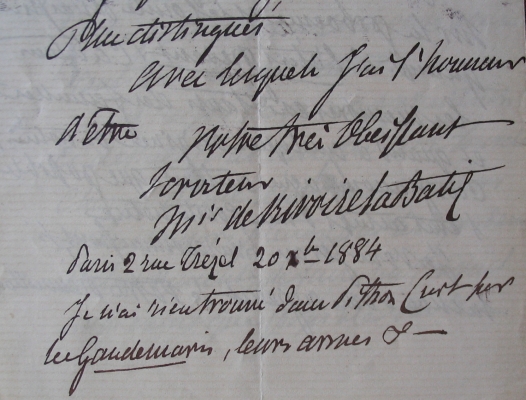 plus distingués
avec lesquels J'ai l'honneur
d'être Votre très Obeissant
serviteur
Mis de Rivoire la Batie
Paris 2 rue Trézel 20 Xbre 1884
Je n'ai rien trouvé dans Pithon Curt sur
les Gaudemaris, leurs armes &